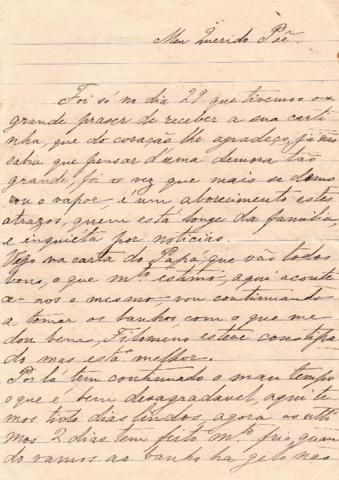 Meu Querido Pae.
Foi só no dia 29 que tivemos o
grande praser de receber a sua carti
nha, que do coração lhe agradeço, já não
sabia que pensar d'uma demora tão
grande, foi a vez que mais se demo
rou o vapor - é um aborecimento estes
atrazos, quem está longe da familia,
e inquiéta por noticias.
Vejo na carta do Papá, que vão todos
bons, o que m.to estimo; aqui aconte
ce-nos o mesmo - vou continuando
a tomar os banhos com o que me
dou bem, Filomeno esteve constipa
do mas está melhor.
Por lá tem continuado o mau tempo
o que é bem desagradavel, aqui te
mos tido dias lindos, agora os ulti
mos 2 dias tem feito m.to frio, quan
do vamos ao banho ha gelo nas